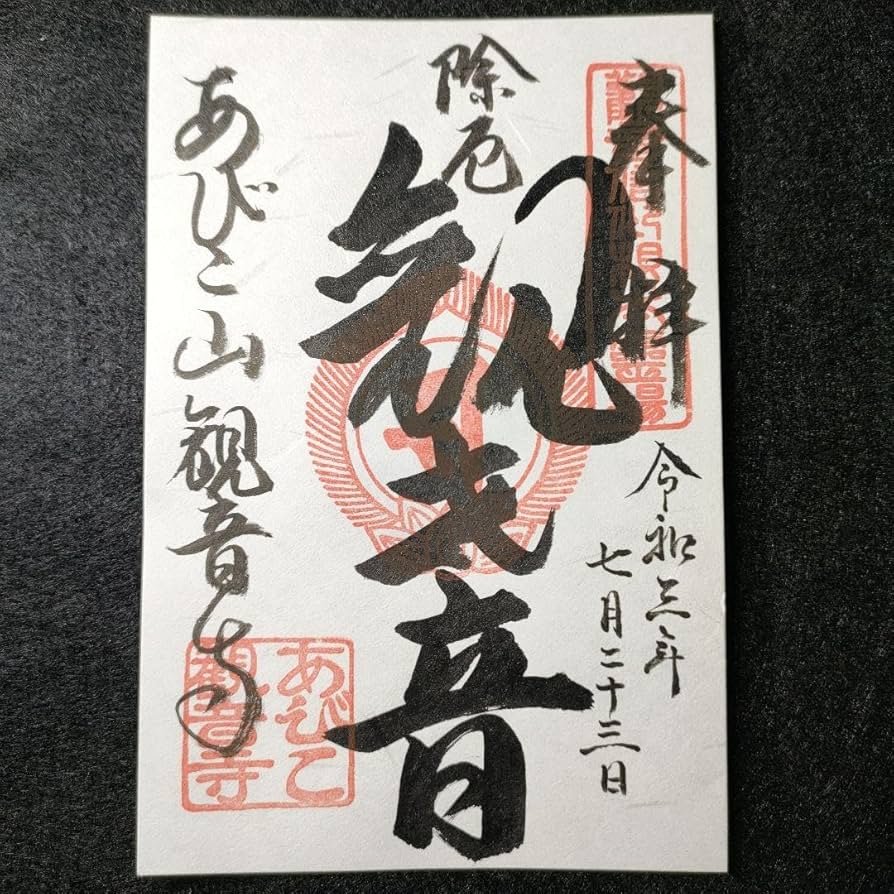 奉拝
令和三年
七月二十三日
除厄
観世音
あびこ山観音寺
あびこ
観音寺